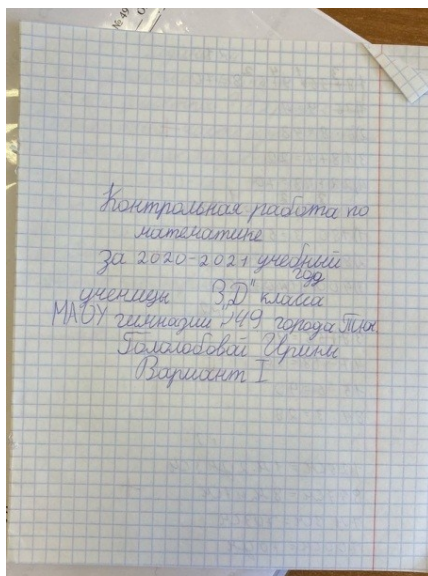 № 49
Контрольная работа по
математике
за 2020-2021 учебный
год
ученицы 3„Д" класса
МАОУ гимназии №49 города Тюм
Гололобовой Ирины
Вариант I